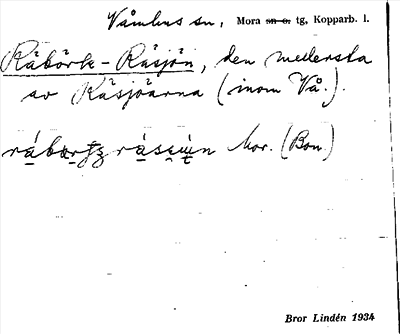 Våmhus sn, Mora sn o. tg, Kopparb. l.
Råbörk-Råsjön, den mellersta
av Råsjöarna (inom Vå.).
Mor. (Bon.)
Bror Lindén 1934